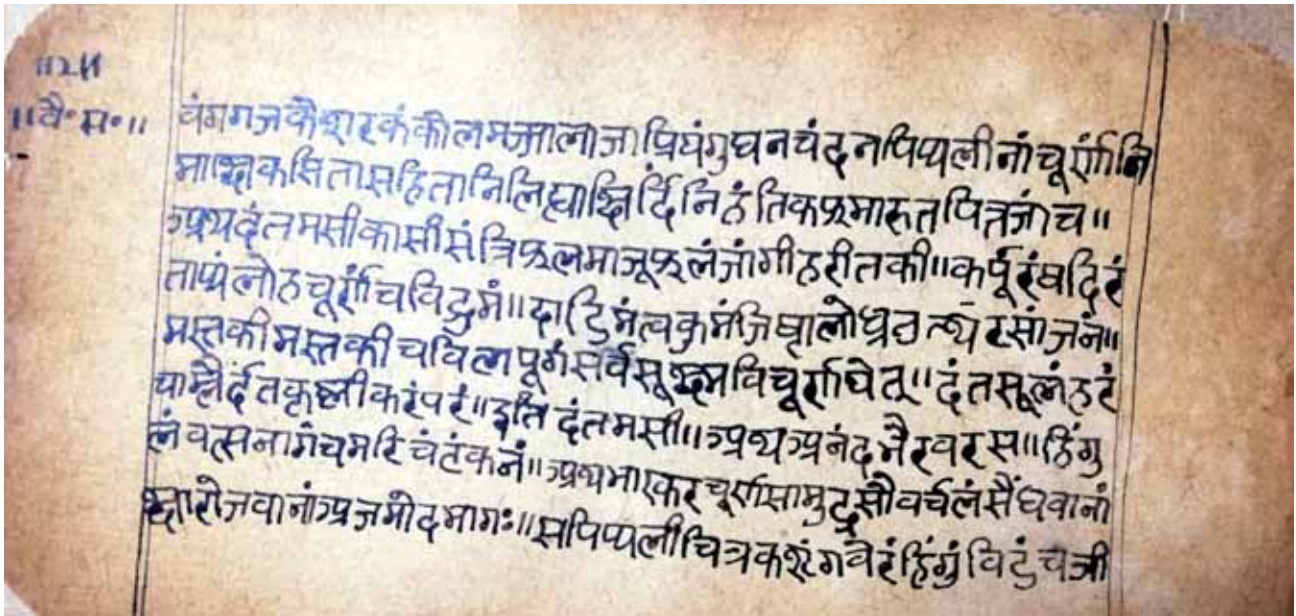 ॥२॥
॥वै॰म॰॥
वंगगजकेशरकंकोलमज्जालाजाप्रियंगुघनचंदनपिप्पलीनांचूर्णानि
माक्षिकसितासहितानिलिह्याछर्दिनिहंतिकफमारुतपित्तजांच॥
अथदंतमसीकासीसंत्रिफलमाजूफलंजांगीहरीतकी॥कर्पूरंषदिरं
ताप्यंलोहचूर्णंचविद्रुमं॥दाडिमंत्वकुमंजिष्ठालोध्रतुत्थंरसांजनं॥
मस्तकीमस्तकीचविल्मपूगंसर्वसूक्ष्मविचूर्णयेत्॥दंतसूलंहरं
याम्लैर्दंतकृष्णीकरंपरं॥इतिदंतमसी॥अथअनंदभैरवरस॥हिंगु
लंवत्सनागंचमरिचंटंकनं॥अथभास्करचूर्णसामुद्रसौवर्चलंसैंधवानां
क्षारोजवानांअजमोदभागः॥सपिप्पलीचित्रकशृंगवेरंहिंगुंविटुंचजी